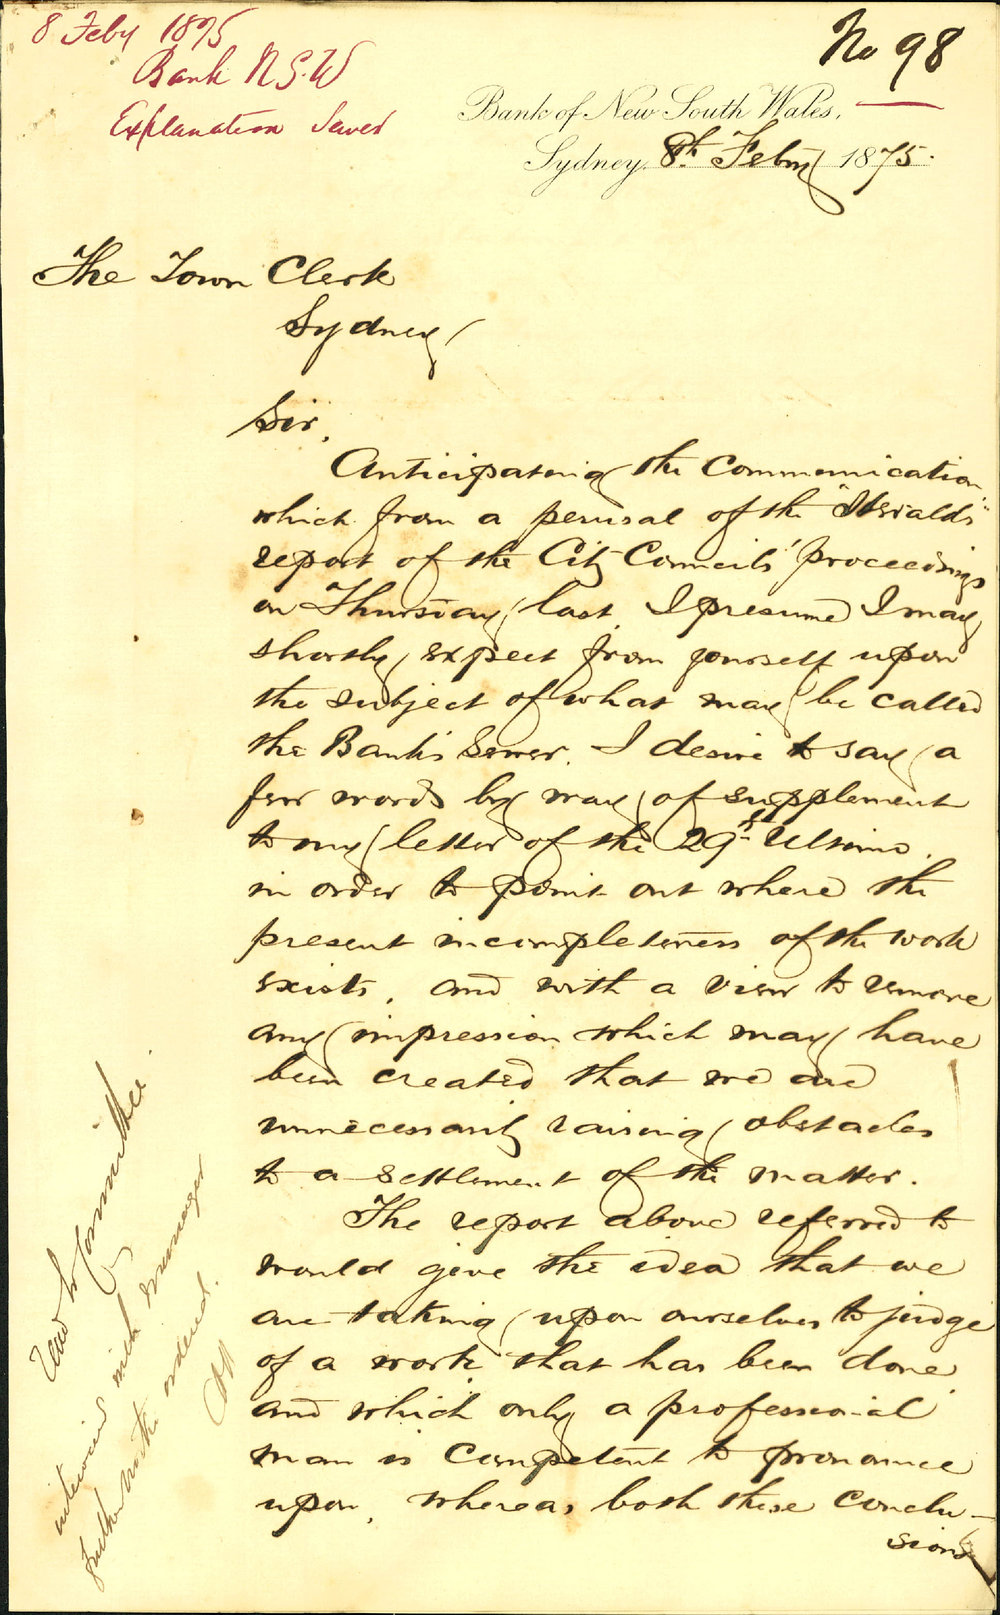 8 Feby 1875
Bank N S. W
Explanation Sewer
No 98
Bank of New South Wales,
Sydney, 8th Feby 1875.
The Town Clerk
Sydney
Sir,
Anticipating the Communication
which from a perusal of the "Herald's"
report of the City Council's proceedings
on Thursday last, I presume I may
shortly expect from yourself upon
the subject of what may be called
the Bank's Sewer, I desire to say a
few words by way of supplement
to my letter of the 29th Ultimo,
in order to point out where the
present incompleteness of the work
exists, and with a view to remove
any impression which may have
been created that we are
unnecessarily raising obstacles
to a settlement of the matter.
The report above referred to
would give the idea that we
are taking upon ourselves to judge
of a work that has been done,
and which only a professional
man is competent to pronounce
upon, whereas both these conclu-
sions
Read to Committee
interview with manager
further works ordered.